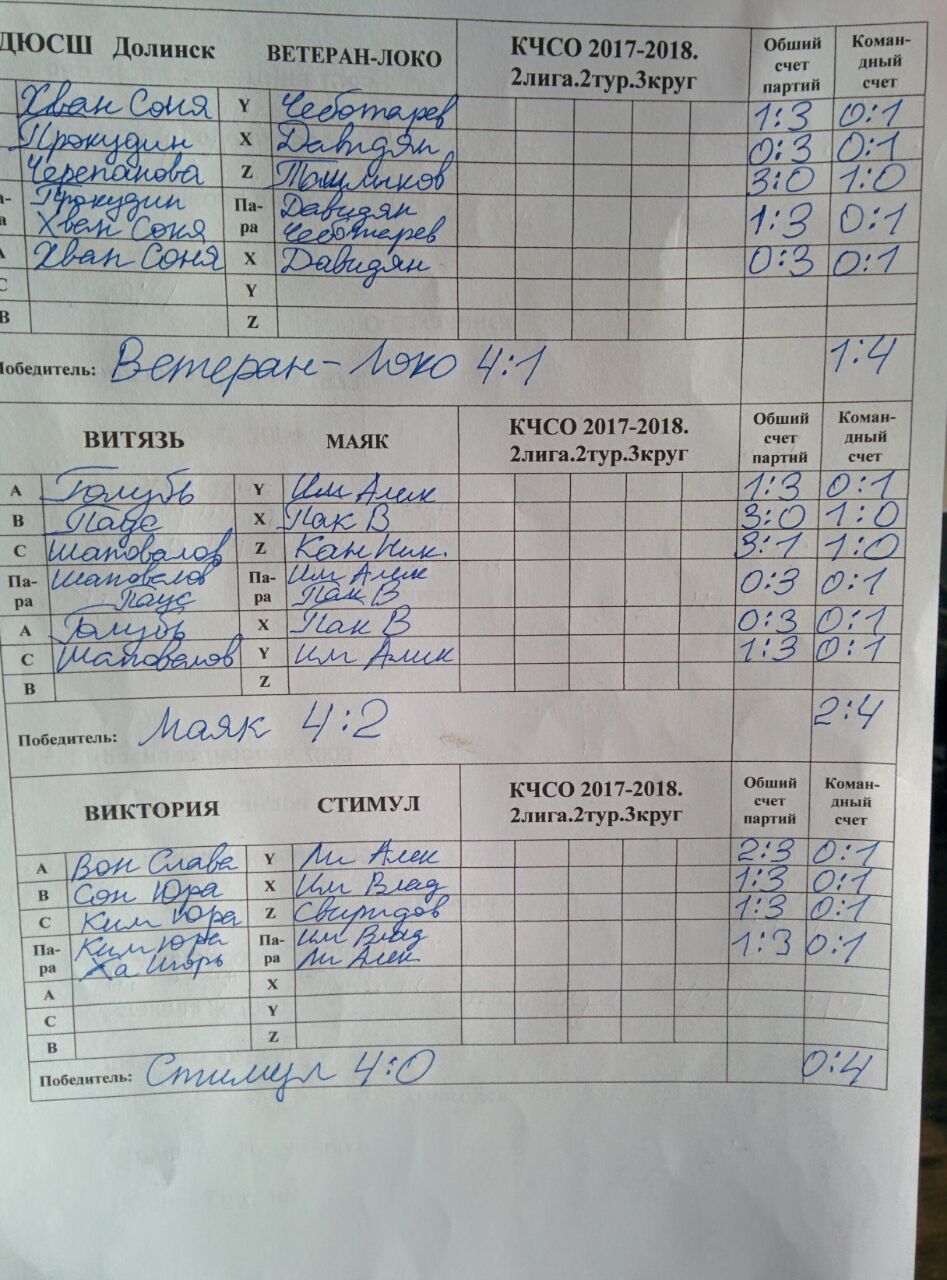 ДЮСШ Долинск ВЕТЕРАН-ЛОКО КЧСО 2017-2018. 2лига.2тур.3круг Обший счет партий Коман-дный счет
Хван Соня Y Чеботарев 1:3 0:1
Прокудин X Давидян 0:3 0:1
Черепанова Z Ташлыков 3:0 1:0
Прокудин Хван Соня Па-ра Давидян Чеботарев 1:3 0:1
А Хван Соня X Давидян 0:3 0:1
С Y
В Z
Победитель: Ветеран-Локо 4:1 1:4
ВИТЯЗЬ МАЯК КЧСО 2017-2018. 2лига.2тур.3круг Обший счет партий Коман-дный счет
А Голубь Y Им Алек 1:3 0:1
В Паус X Пак В 3:0 1:0
С Шаповалов Z Кан Ник. 3:1 1:0
Па-ра Шаповалов Паус Па-ра Им Алек Пак В 0:3 0:1
А Голубь X Пак В 0:3 0:1
С Шаповалов Y Им Алек 1:3 0:1
В Z
Победитель: Маяк 4:2 2:4
ВИКТОРИЯ СТИМУЛ КЧСО 2017-2018. 2лига.2тур.3круг Обший счет партий Коман-дный счет
А Вон Слава Y Ли Алек 2:3 0:1
В Сон Юра X Им Влад 1:3 0:1
С Ким Юра Z Свиридов 1:3 0:1
Па-ра Ким Юра Ха Игорь Па-ра Им Влад Ли Алек 1:3 0:1
А X
С Y
В Z
Победитель: Стимул 4:0 0:4